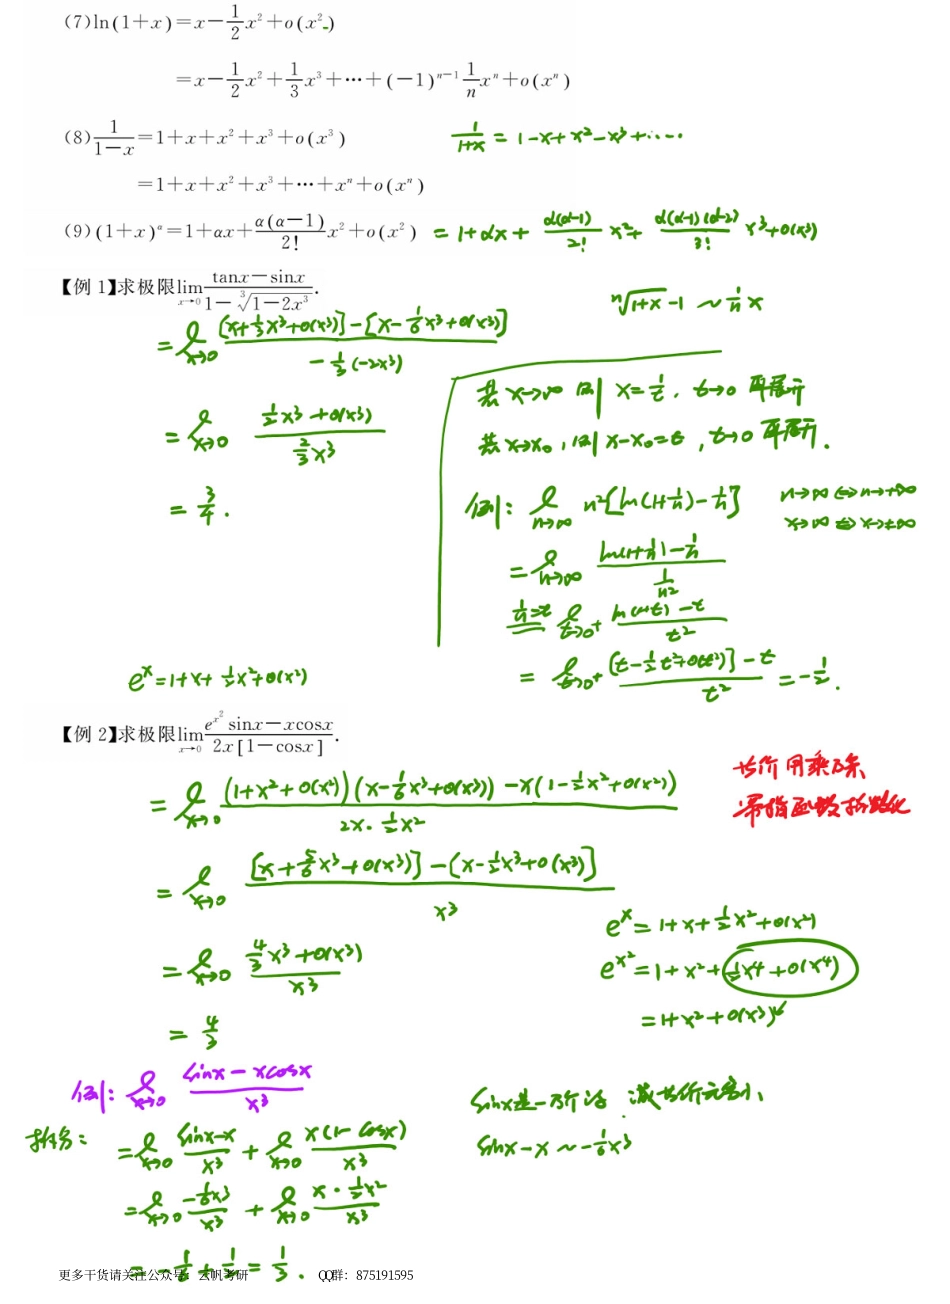 (7) ln(1+x)=x-\frac{1}{2}x²+o(x²)
=x-\frac{1}{2}x²+\frac{1}{3}x³+⋯+(-1)^{n-1}\frac{1}{n}xⁿ+o(xⁿ)
(8) \frac{1}{1-x}=1+x+x²+x³+o(x³) \frac{1}{1+x}=1-x+x²-x³+⋯⋯
=1+x+x²+x³+⋯+xⁿ+o(xⁿ)
(9) (1+x)^α=1+αx+\frac{α(α-1)}{2!}x²+o(x²) =1+αx+\frac{α(α-1)}{2!}x²+\frac{α(α-1)(α-2)}{3!}x³+o(x³)
【例 1】求极限lim_{x→0}\frac{tanx-sinx}{1-\sqrt[3]{1-2x³}}.
\sqrt[n]{1+x}-1~\frac{1}{n}x
=lim_{x→0}\frac{[x+\frac{1}{3}x³+o(x³)]-[x-\frac{1}{6}x³+o(x³)]}{-\frac{1}{3}(-2x³)}
=lim_{x→0}\frac{\frac{1}{2}x³+o(x³)}{\frac{2}{3}x³}
=\frac{3}{4}.
若x→∞ 则 x=\frac{1}{t}, t→0 再展开
若x→x₀, 则 x-x₀=t, t→0 再展开.
例: lim_{n→∞} n²[ln(1+\frac{1}{n})-\frac{1}{n}] n→∞⇔n→+∞
x→∞⇔x→±∞
=lim_{n→∞}\frac{ln(1+\frac{1}{n})-\frac{1}{n}}{\frac{1}{n²}}
\frac{1}{n}=t lim_{t→0⁺}\frac{ln(1+t)-t}{t²}
=lim_{t→0⁺}\frac{[t-\frac{1}{2}t²+o(t²)]-t}{t²}=-\frac{1}{2}.
e^x=1+x+\frac{1}{2}x²+o(x²)
【例 2】求极限lim_{x→0}\frac{e^{x²}sinx-xcosx}{2x[1-cosx]}.
=lim_{x→0}\frac{(1+x²+o(x²))(x-\frac{1}{6}x³+o(x³))-x(1-\frac{1}{2}x²+o(x²))}{2x·\frac{1}{2}x²}
幂指函数指数化
=lim_{x→0}\frac{[x+\frac{5}{6}x³+o(x³)]-[x-\frac{1}{2}x³+o(x³)]}{x³}
=lim_{x→0}\frac{\frac{4}{3}x³+o(x³)}{x³}
=\frac{4}{3}
e^x=1+x+\frac{1}{2}x²+o(x²)
e^{x²}=1+x²+\frac{1}{2}x⁴+o(x⁴)
=1+x²+o(x³)
例: lim_{x→0}\frac{sinx-xcosx}{x³}
=lim_{x→0}\frac{sinx-x}{x³}+lim_{x→0}\frac{x(1-cosx)}{x³}
=lim_{x→0}\frac{-\frac{1}{6}x³}{x³}+lim_{x→0}\frac{x·\frac{1}{2}x²}{x³}
=-\frac{1}{6}+\frac{1}{2}=\frac{1}{3}.
sinx-x~-\frac{1}{6}x³
更多干货请关注公众号：云帆考研 QQ群：875191595